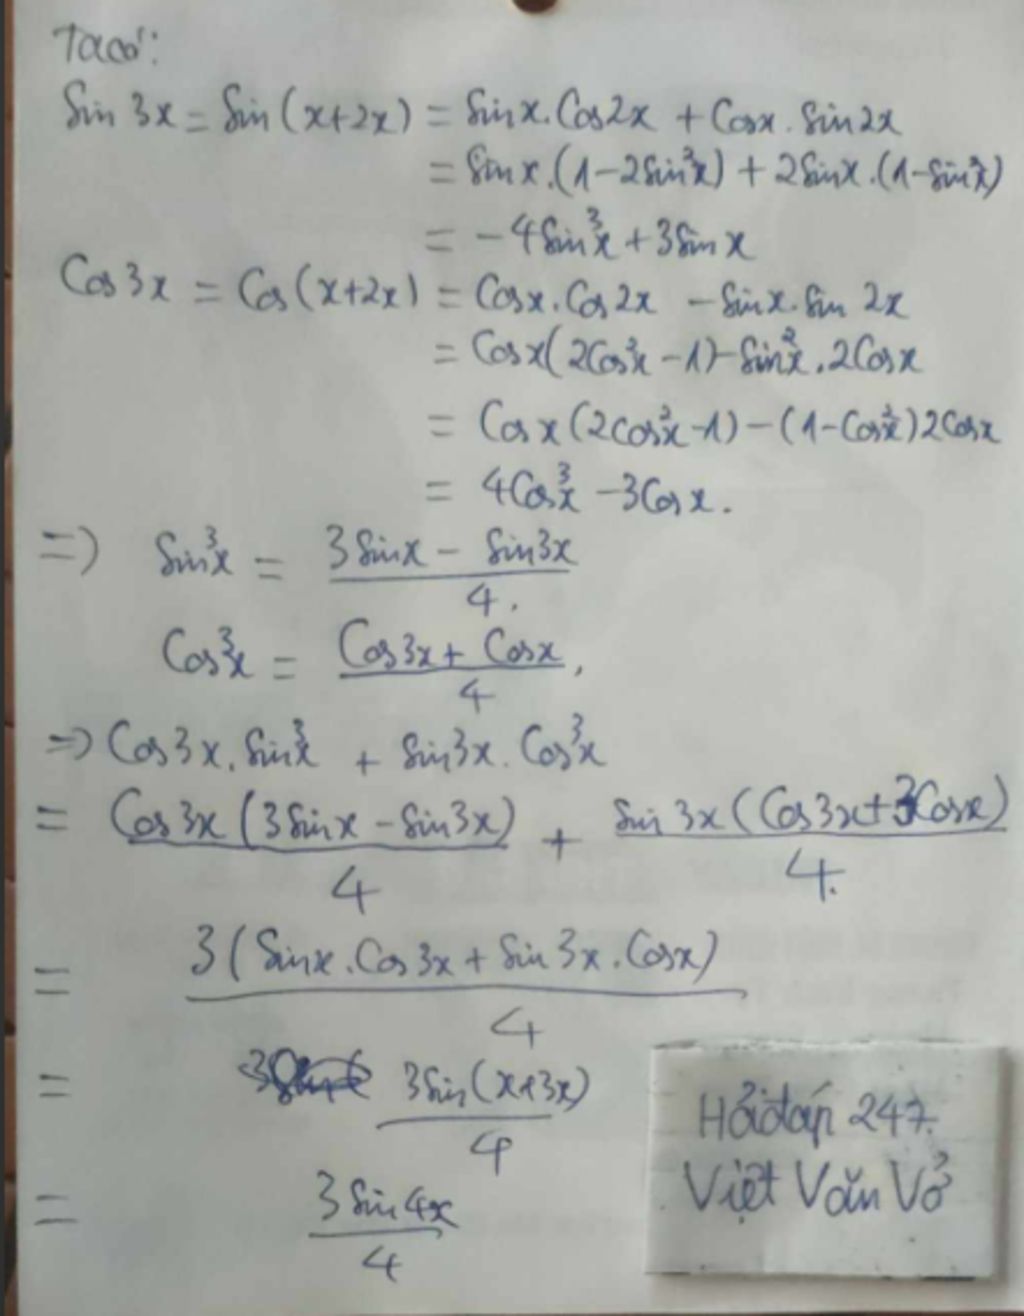 Ta có:
Sin 3x = Sin (x+2x) = Sinx.Cos2x + Cosx.Sin2x
= Sin x.(1-2Sin²x) + 2Sinx.(1-Sin²x)
= -4Sin³x + 3Sin x
Cos 3x = Cos (x+2x) = Cosx.Cos2x - Sinx.Sin 2x
= Cos x(2Cos²x -1) - Sin²x.2Cosx
= Cos x (2Cos²x-1) - (1-Cos²x)2Cosx
= 4Cos³x - 3Cos x.
=> Sin³x = (3Sinx - Sin3x)/4.
Cos³x = (Cos3x + Cosx)/4,
=> Cos3x.Sin³x + Sin3x.Cos³x
= (Cos3x (3Sinx - Sin3x))/4 + (Sin 3x (Cos3x+3Cosx))/4.
= 3(Sinx.Cos3x + Sin3x.Cosx)/4
= 3Sin(x+3x)/4
= 3Sin4x/4
Hỏi đáp 247.
Việt Văn Vở